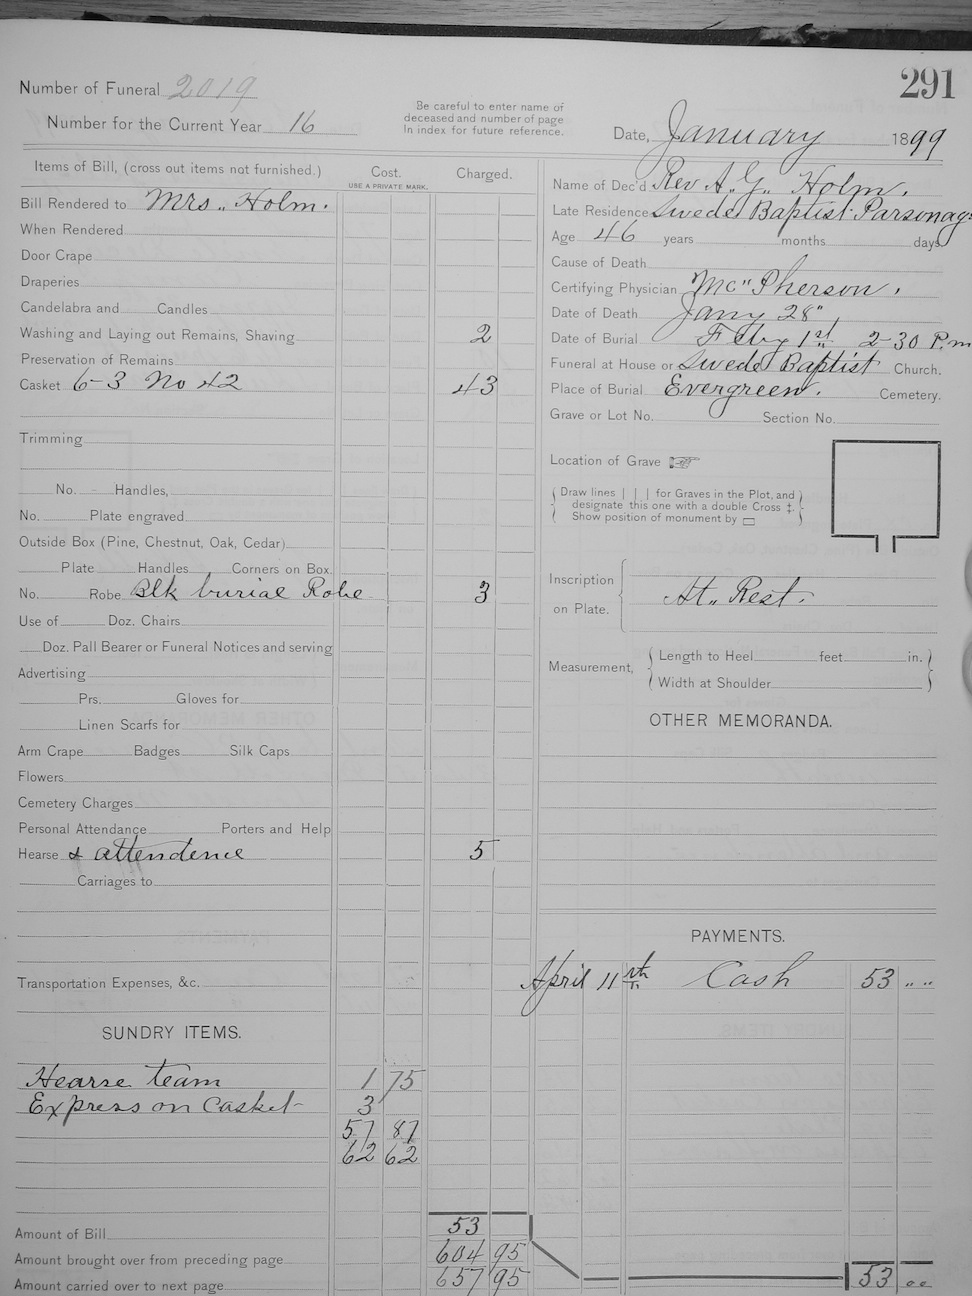 291
Number of Funeral 2019
Number for the Current Year 16
Be careful to enter name of
deceased and number of page
in index for future reference.
Date, January 1899
Items of Bill, (cross out items not furnished.) Cost. Charged.
USE A PRIVATE MARK.
Bill Rendered to Mrs. Holm.
When Rendered
Door Crape
Draperies
Candelabra and Candles
Washing and Laying out Remains, Shaving 2
Preservation of Remains
Casket 6-3 No 42 43
Trimming
No. Handles,
No. Plate engraved
Outside Box (Pine, Chestnut, Oak, Cedar)
Plate Handles Corners on Box
No. Robe Blk burial Robe 3
Use of Doz. Chairs
Doz. Pall Bearer or Funeral Notices and serving
Advertising
Prs. Gloves for
Linen Scarfs for
Arm Crape Badges Silk Caps
Flowers
Cemetery Charges
Personal Attendance Porters and Help
Hearse & attendence 5
Carriages to
Transportation Expenses, &c.
SUNDRY ITEMS.
Hearse team 1 75
Express on Casket 3
57 87
62 62
Amount of Bill 53
Amount brought over from preceding page 604 95
Amount carried over to next page 657 95
Name of Dec'd Rev A. G. Holm.
Late Residence Swede Baptist Parsonage
Age 46 years months days
Cause of Death
Certifying Physician Mc"Pherson.
Date of Death Jany 28"
Date of Burial Feby 1st 2-30 P.m
Funeral at House or Swede Baptist Church.
Place of Burial Evergreen. Cemetery.
Grave or Lot No. Section No.
Location of Grave ☞
Draw lines | | | for Graves in the Plot, and
designate this one with a double Cross ‡.
Show position of monument by ▭
Inscription
on Plate. At Rest.
Measurement, Length to Heel feet in.
Width at Shoulder
OTHER MEMORANDA.
PAYMENTS.
April 11th Cash 53 " "
53 00